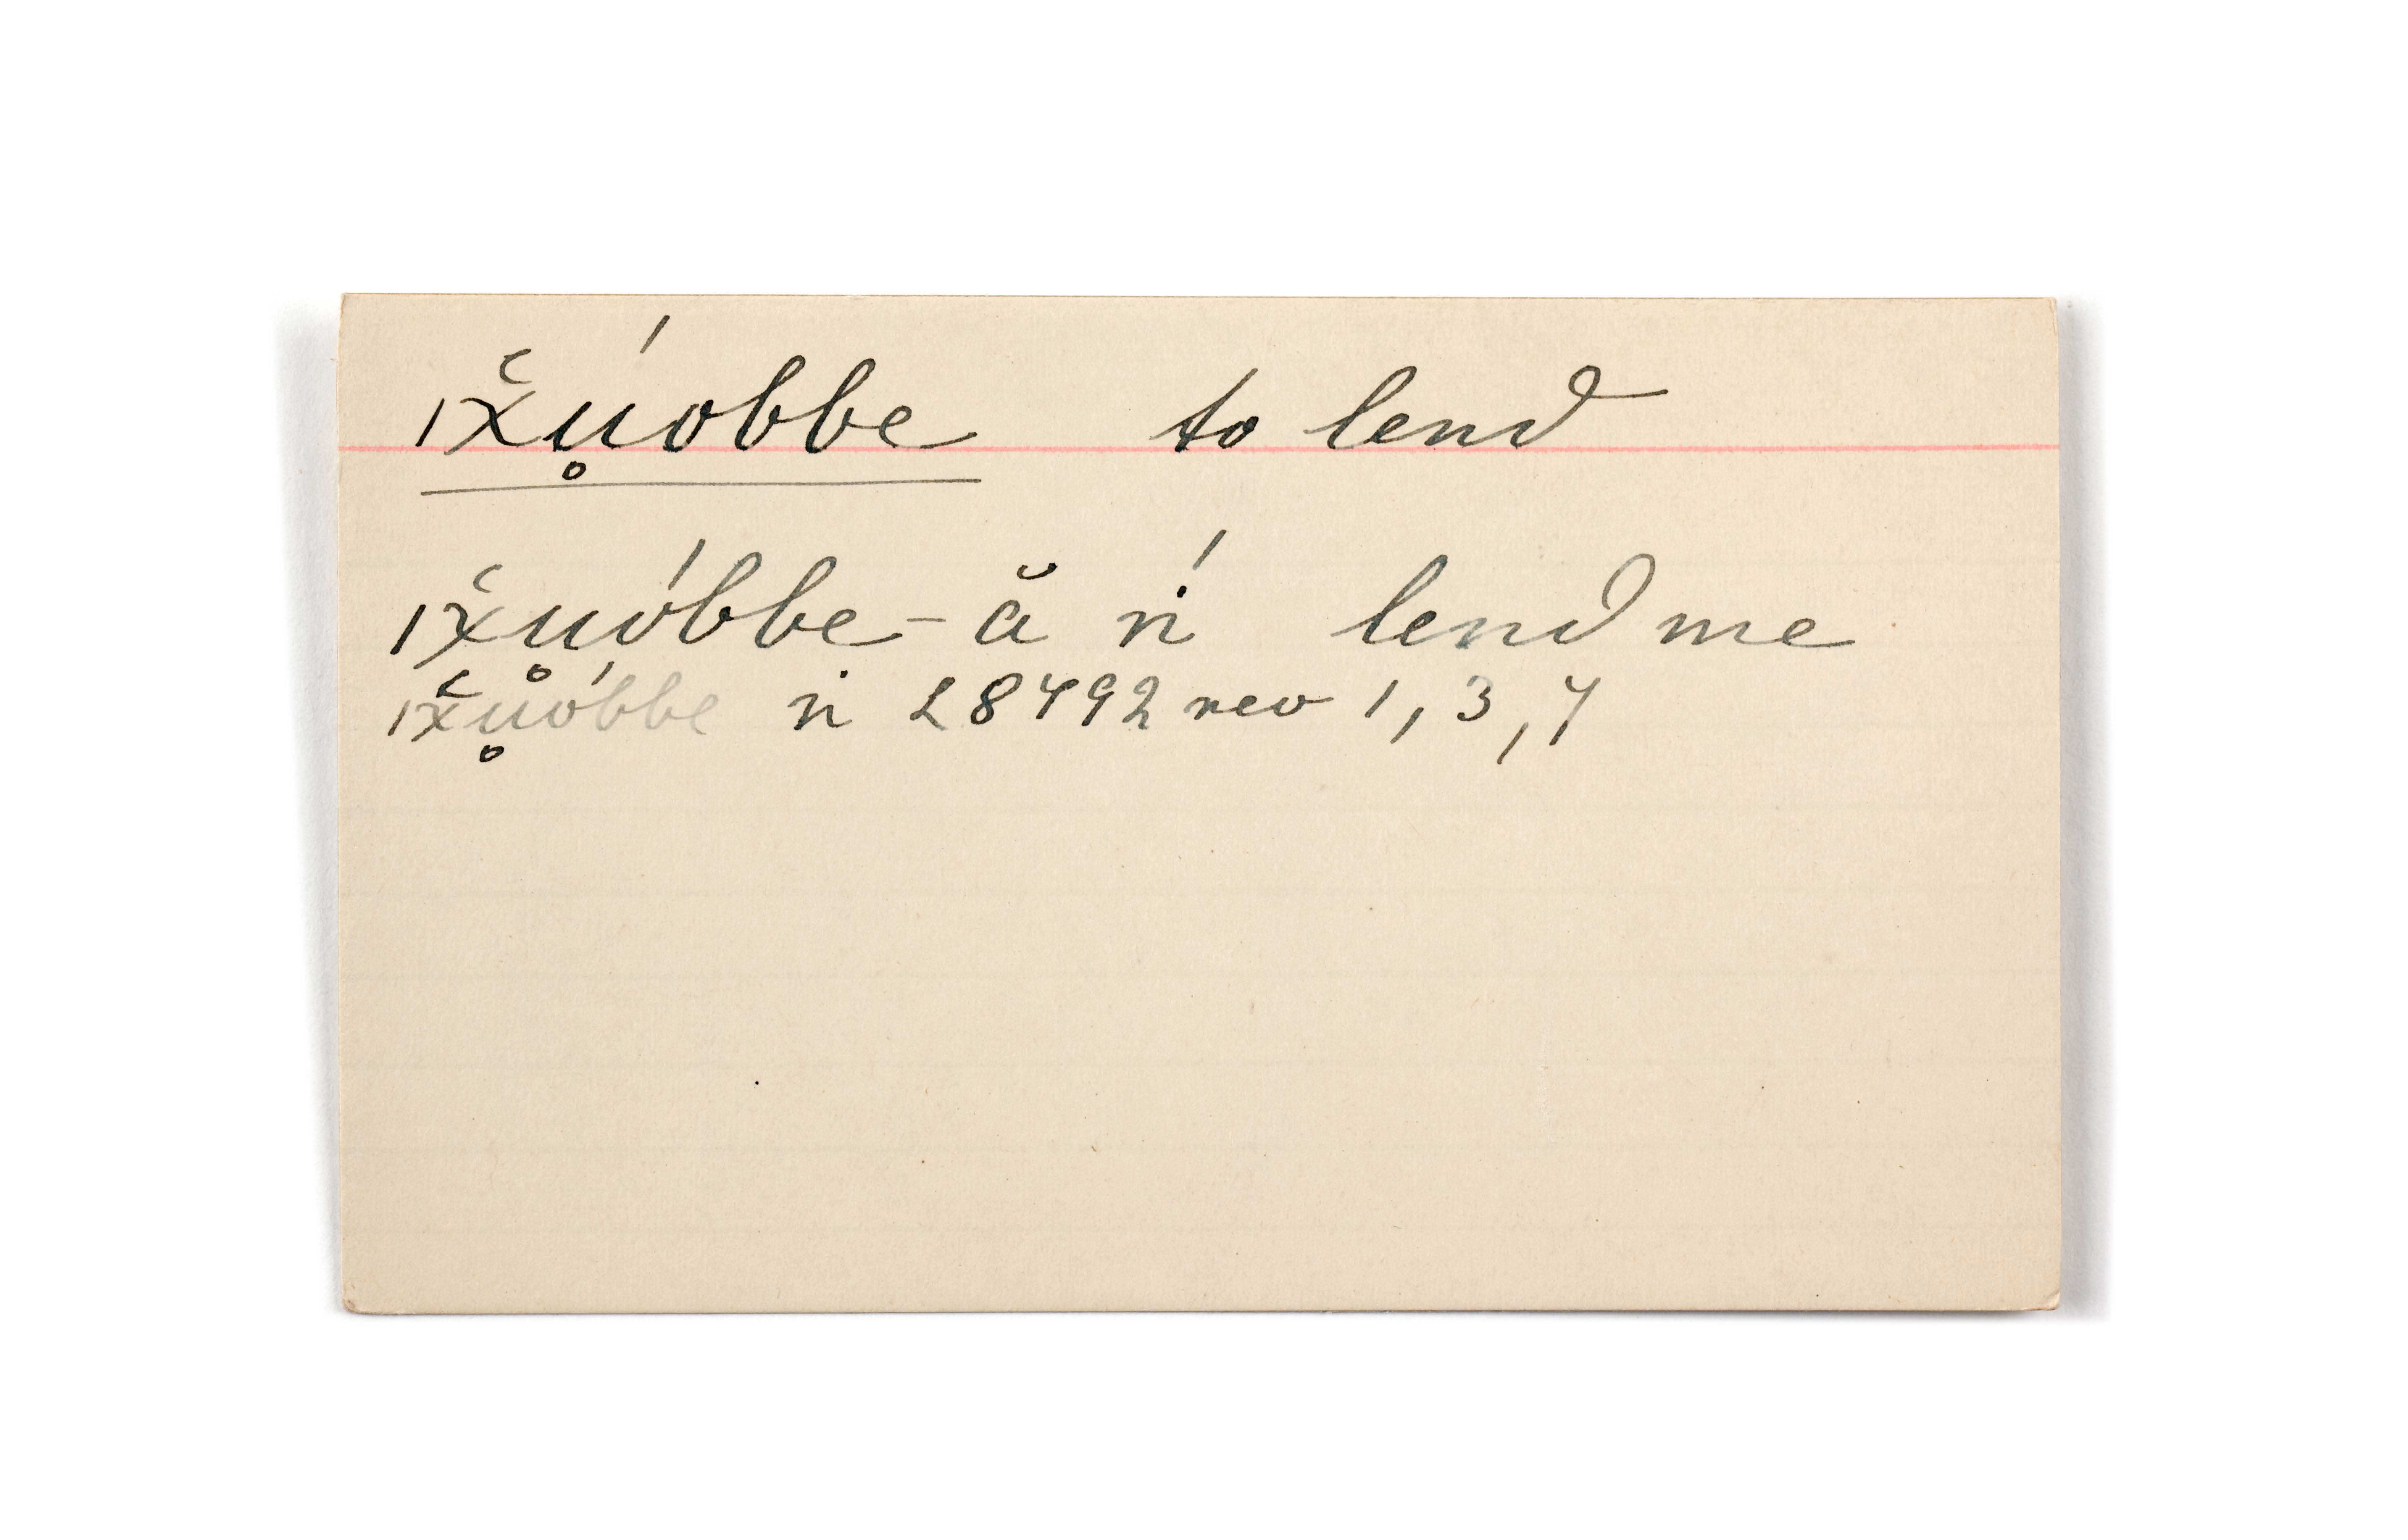 ıx̌u̥óbbe to lend
ıx̌uóbbe-ă ṅ́ lend me
ıx̌u̥óbbe ṅ 28492 rev 1, 3, 4